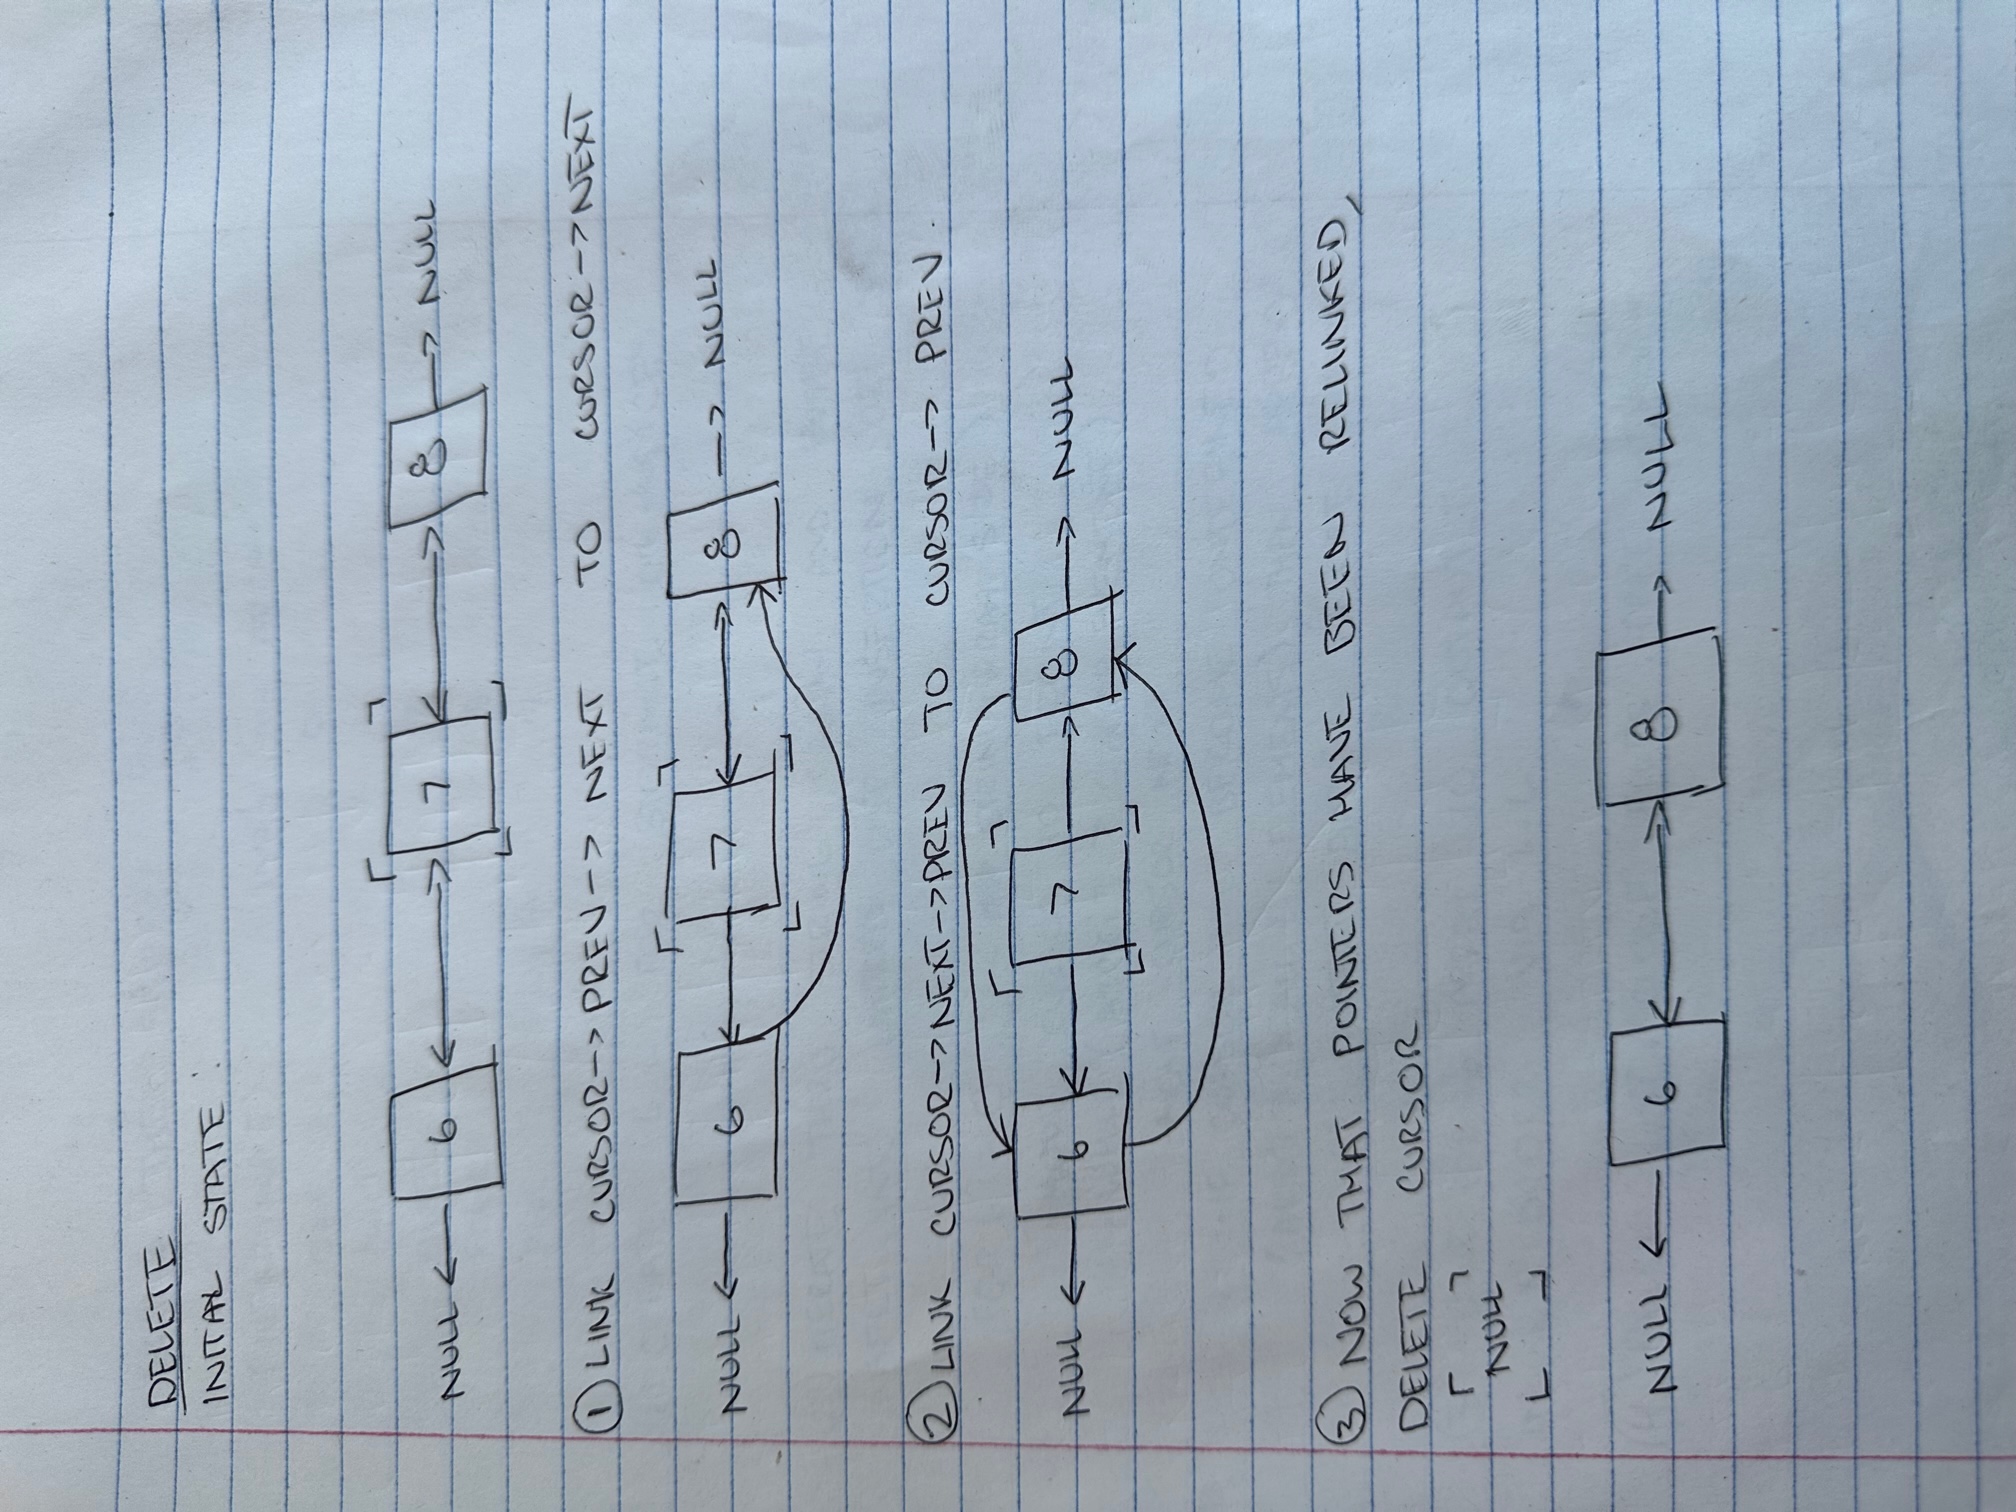 DELETE
INITAL STATE :
NULL ← 6 ↔ 7 ↔ 8 → NULL
① LINK CURSOR-->PREV--> NEXT TO CURSOR-->NEXT
NULL ← 6 ← 7 ↔ 8 → NULL
② LINK CURSOR-->NEXT-->PREV TO CURSOR--> PREV.
NULL ← 6 ← 7 → 8 → NULL
③ NOW THAT POINTERS HAVE BEEN RELINKED,
DELETE CURSOR
NULL
NULL ← 6 ↔ 8 → NULL